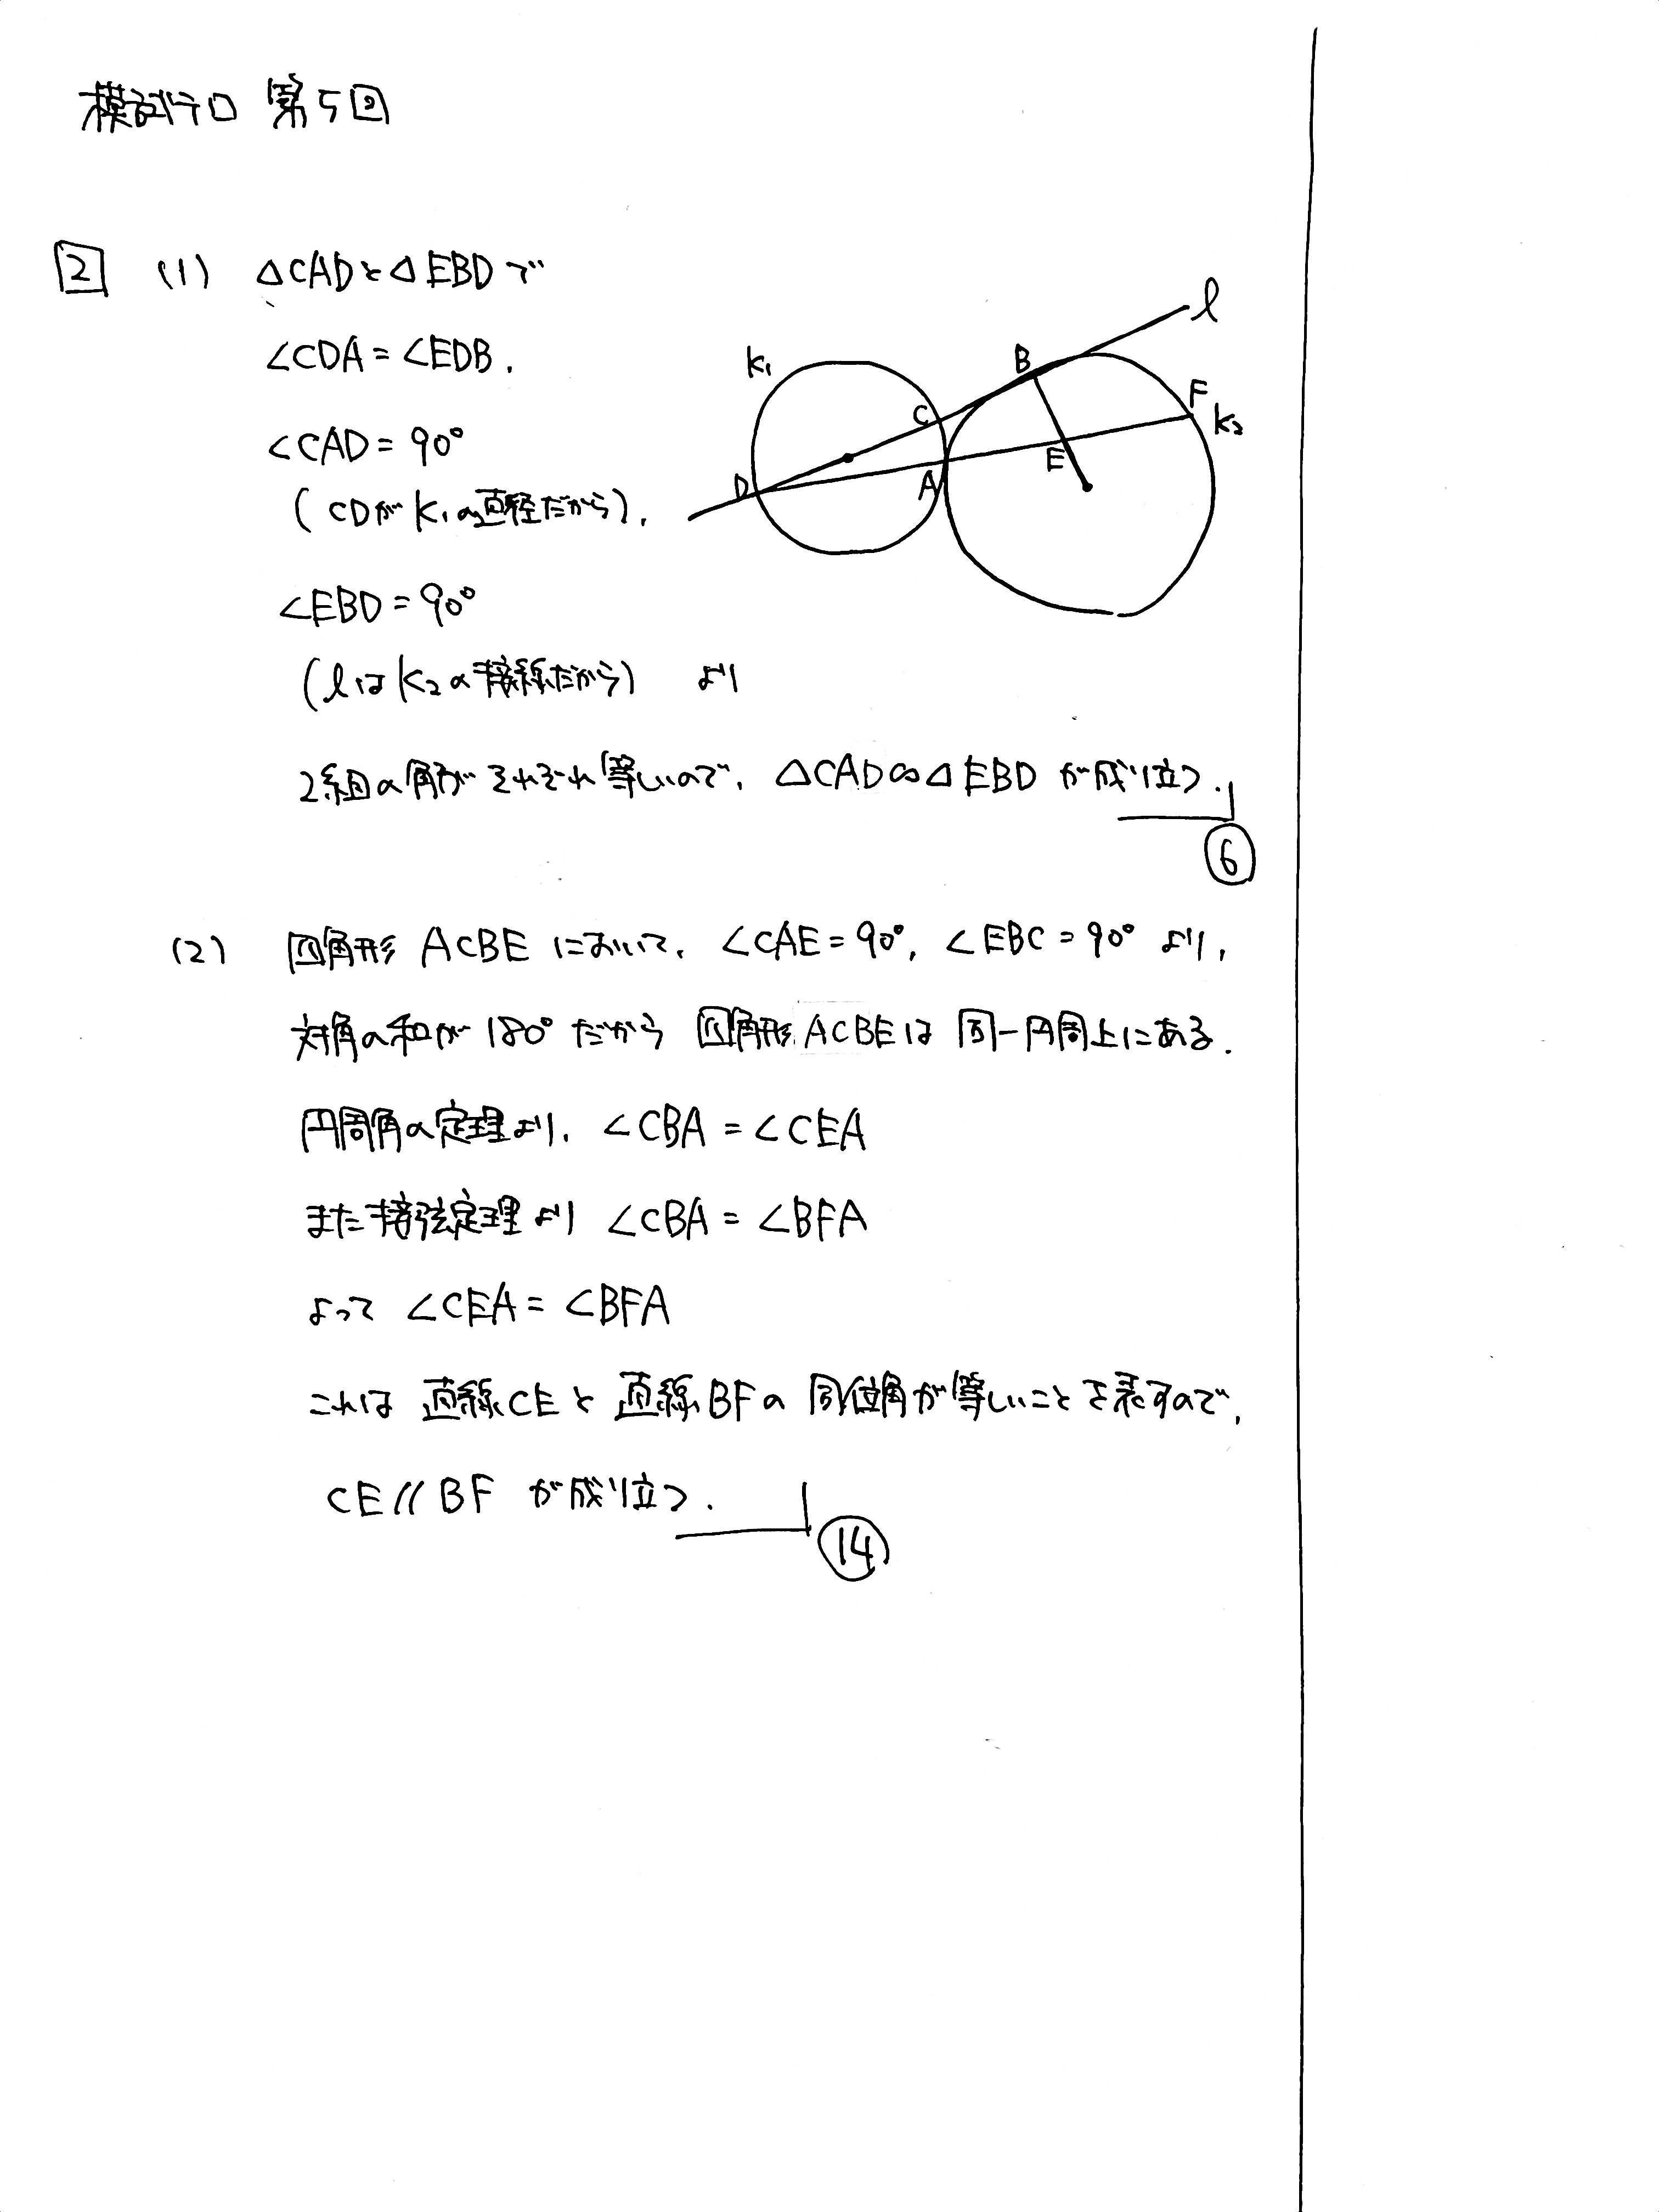 模試テロ 第5回
2 (1) △CADと△EBDで
∠CDA=∠EDB.
∠CAD=90°
(CDがK₁の直径だから),
∠EBD=90°
(lはK₂の接線だから) より
2組の角がそれぞれ等しいので, △CAD∽△EBD が成り立つ.
6
l
K₁
B
F
C
K₂
E
D
A
(2) 四角形 ACBE において, ∠CAE=90°, ∠EBC=90° より,
対角の和が 180° だから 四角形 ACBEは 同一円周上にある.
円周角の定理より, ∠CBA=∠CEA
また接弦定理より ∠CBA=∠BFA
よって ∠CEA=∠BFA
これは 直線CEと 直線BFの 同位角が等しいことを表すので,
CE//BF が成り立つ.
14